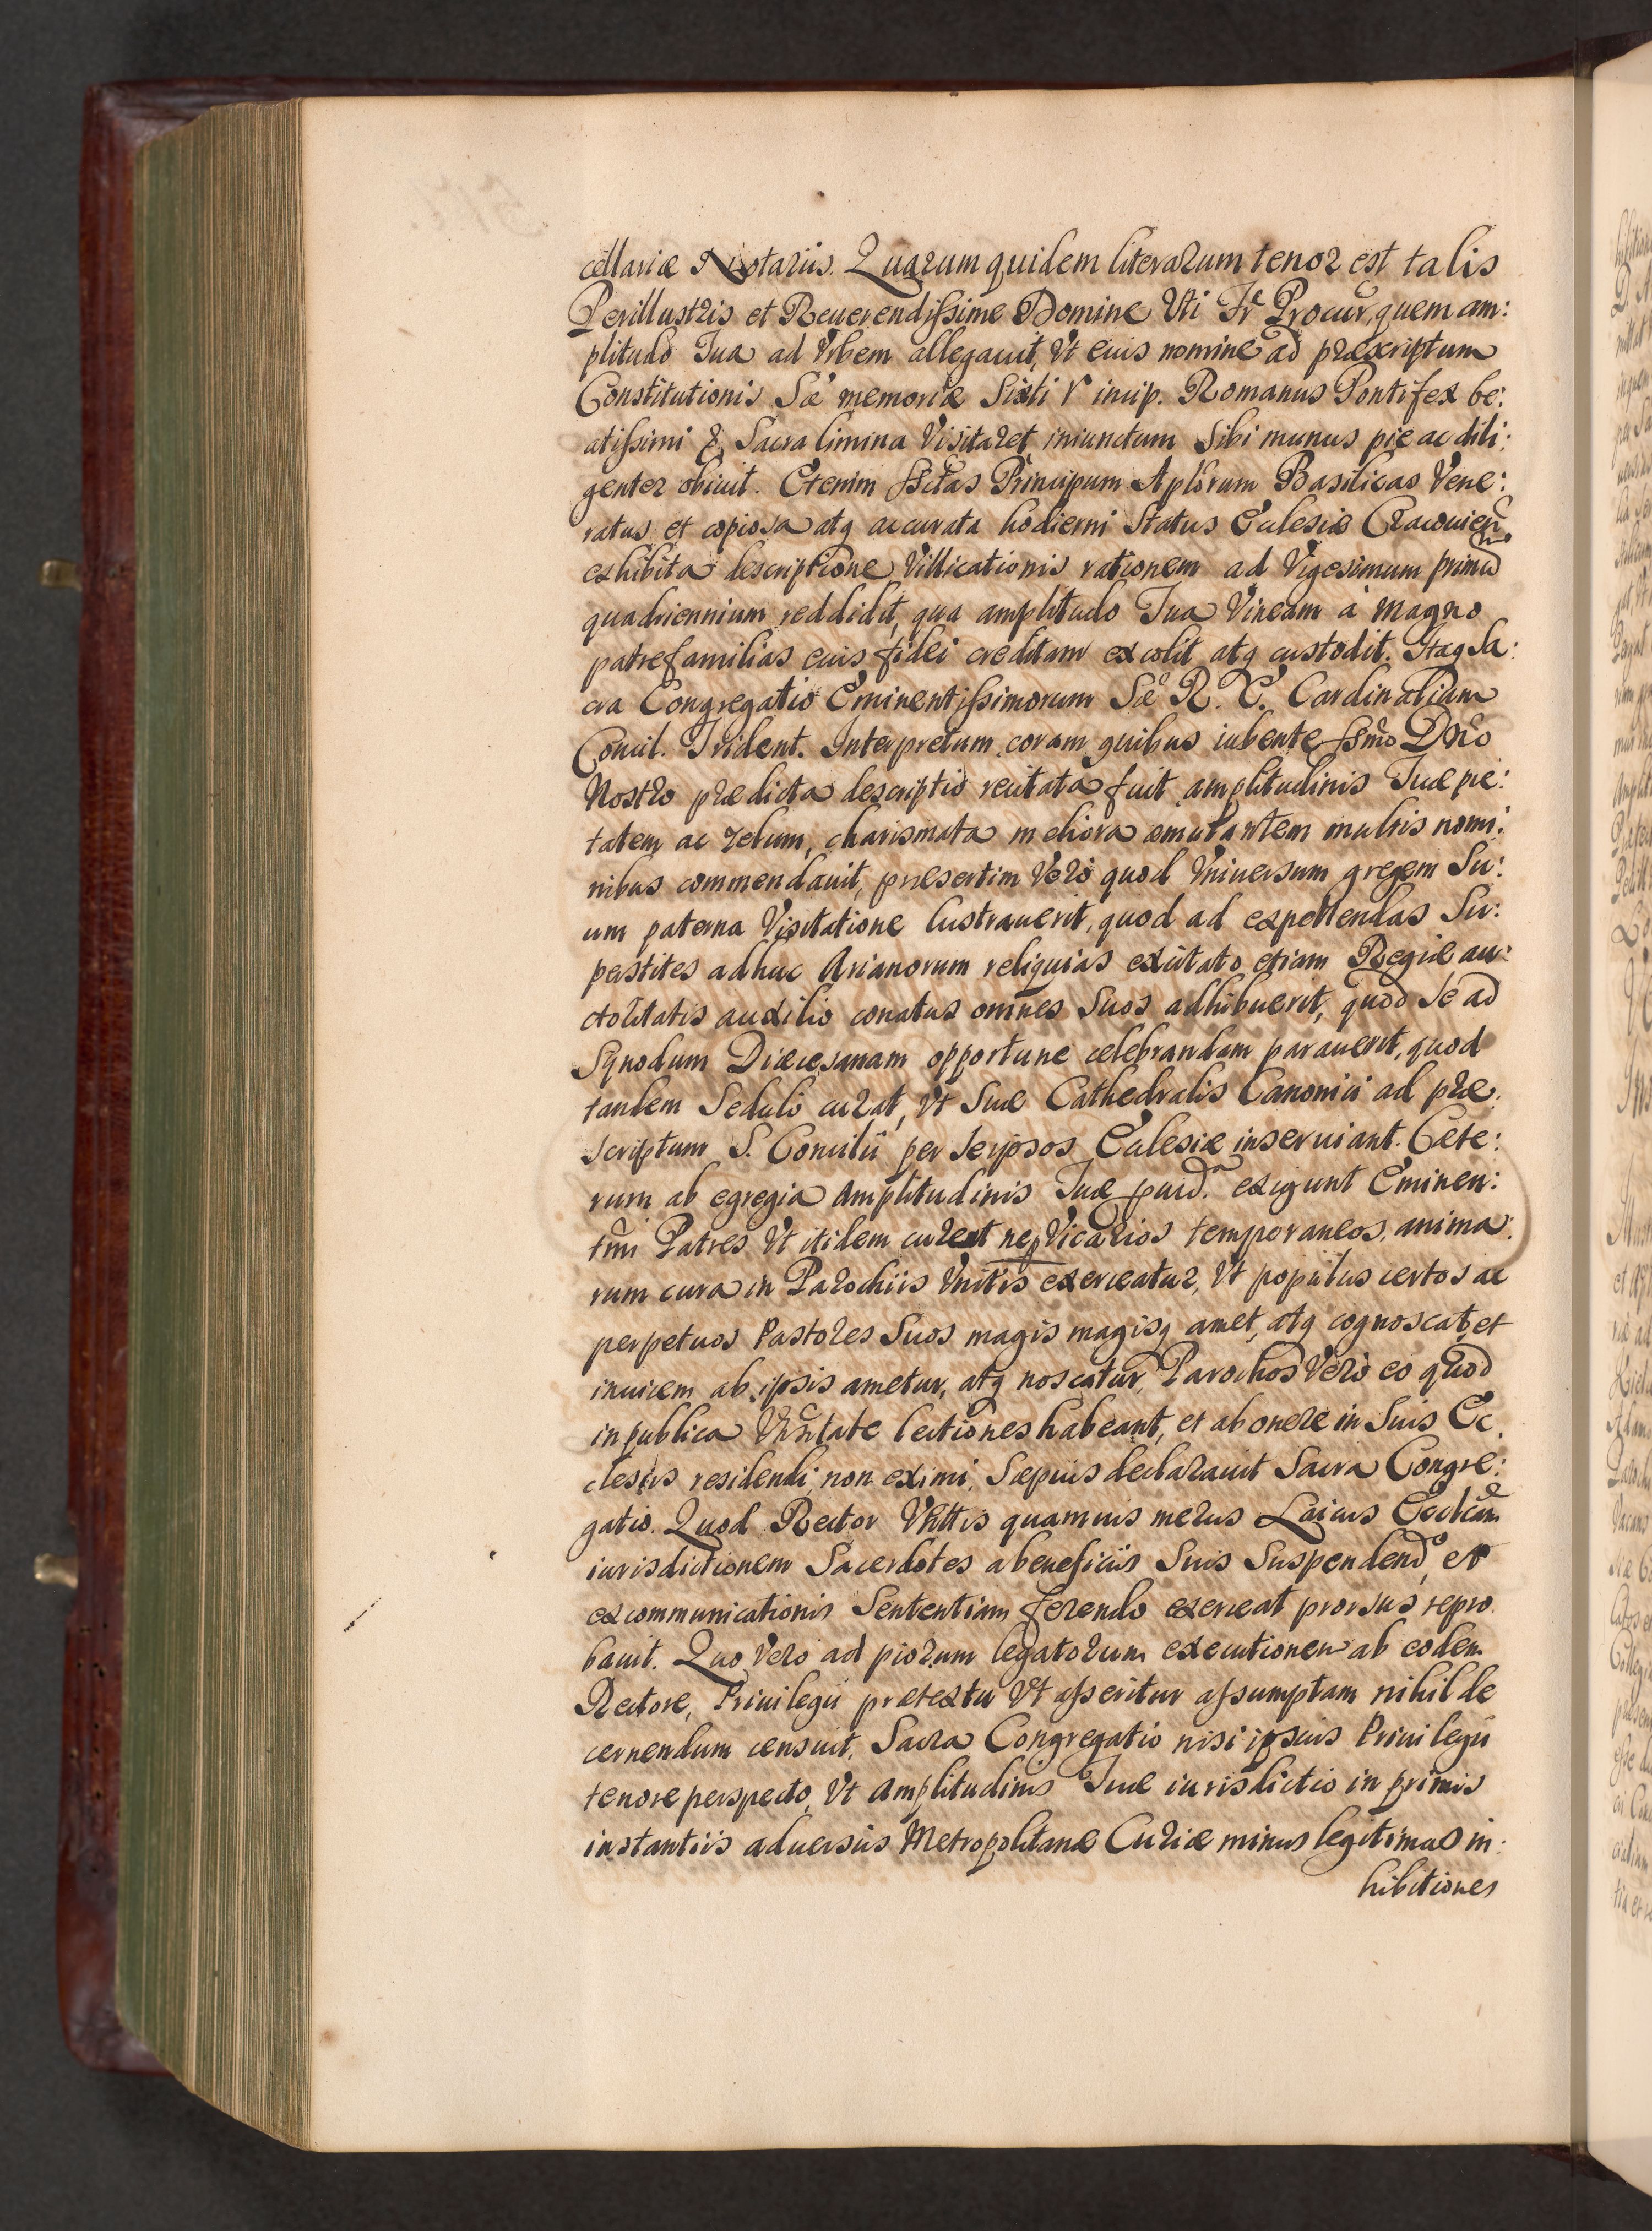 cellariæ Notariis. Quarum quidem literarum tenor est talis
Perillustris et Reuerendissime Domine Vti Fr Procur, quem am:
plitudo Tua ad Vrbem allegauit, Vt eius nomine ad præscriptum
Constitutionis Sæ memoriæ Sixti V incip. Romanus Pontifex be:
atissimi & Sacra limina Visitaret, iniunctum Sibi munus pie ac dili:
genter obiuit. Etenim Principum Aplorum Basilicas Vene:
ratus et copiosa atq accurata hodierni Status Ecclesiæ Cracouien
exhibita descriptione Villicationis rationem ad Vigesimum primū
quadriennium reddidit, qua amplitudo Tua Vineam à magno
patrefamilias eius fidei creditam excolit atq custodit. Itaq Sa:
cra Congregatio Eminentissimorum Sæ R. E. Cardinalium
Concil. Trident. Interpretum coram quibus iubente Ssmo Dno
Nostro prædicta descriptio recitata fuit amplitudinis Tuæ pie:
tatem ac zelum, charismata meliora æmulantem multis nomi:
nibus commendauit, præsertim Verò quod Vniuersum gregem Su:
um paterna Visitatione lustrauerit, quod ad expellendas Su:
perstites adhuc Arianorum reliquias excitato etiam Regiæ au:
ctoritatis auxilio conatus omnes Suos adhibuerit, quod Se ad
Synodum Diæcesanam opportune celebrandam parauerit, quod
tandem Sedulò curat, Vt Suæ Cathedralis Canonici ad præ:
scriptum S. Concilii per Seipsos Ecclesiæ inseruiant. Cæte:
rum ab egregia Amplitudinis Tuæ exigunt Eminen:
tmi Patres Vt itidem curet ne Vicarios temporaneos, anima:
rum cura in Parochiis Vnitis exerceatur, Vt populus certos ac
perpetuos Pastores Suos magis magisq amet, atq cognoscat, et
inuicem ab ipsis ametur, atq noscatur, Parochos Verò eo quod
in publica lectiones habeant, et ab onere in Suis Ec:
clesiis residendi non eximi, Sæpius declarauit Sacra Congre:
gatio. Quod Rector quamuis merus Laicus
iurisdictionem Sacerdotes a beneficiis Suis Suspendendo et
excommunicationis Sententiam ferendo exerceat prorsus repro
bauit. Quo Vero ad piorum legatorum executionem ab eodem
Rectore, Priuilegii prætextu Vt asseritur assumptam nihil de
cernendum censuit, Sacra Congregatio nisi ipsius Priuilegii
tenore perspecto, Vt Amplitudinis Tuæ iurisdictio in primis
instantiis aduersus Metropolitanæ Curiæ minus legitimas in:
hibitiones